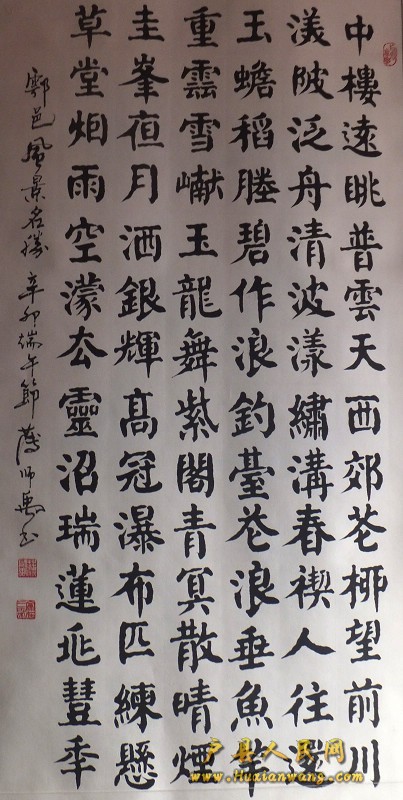 中樓遠眺普雲天西郊花柳望前川
渼陂泛舟清波漾繡溝春禊人往還
玉蟾稻塍碧作浪釣臺花浪垂魚竿
重雲雪巘玉龍舞紫閣青冥散晴煙
圭峯夜月洒銀輝高冠瀑布匹練懸
草堂烟雨空濛去靈沼瑞蓮兆豐年
鄠邑風景名勝 辛卯端午節
户县人民网
www.Huxianwang.com